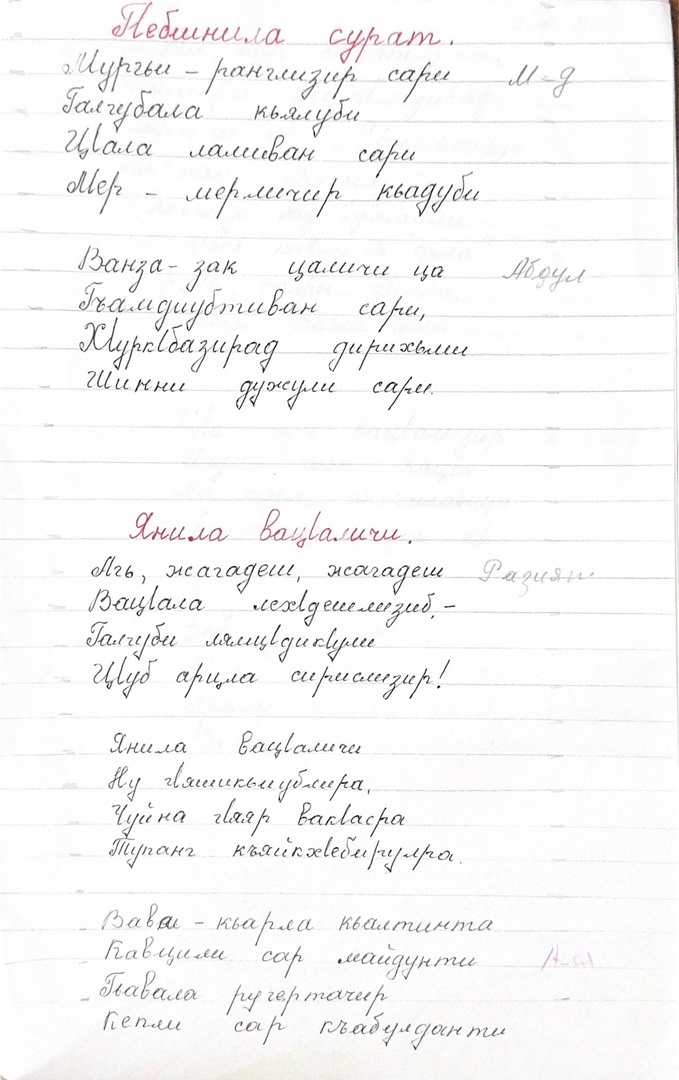 Гебшнила сурат.
Мургьи - ранглизир сари М-д
Галгубала кьялуби
ЦӀала ламиван сари
Мер - мерличир кьадуби
Ванза - зак цаличи ца Абдул
Гъамдиубтиван сари,
ХӀуркӀбазирад дирихьли
Шинни дужули сари.
Янила вацӀаличи.
Агь, жагадеш, жагадеш Разият
ВацӀала лехӀдешлизиб, -
Галгуби лямцӀдикӀули
ЦӀуб арцла сирислизир!
Янила вацӀаличи
Ну гӀяшикьиублира,
Чуйна гӀяяр вакӀасра
Тупанг къяйкхӀебирулра.
Вава - кьарла кьалтинта
Кавцили сар майдунти
Гьавала ругертачир
Кепли сар къабулданти